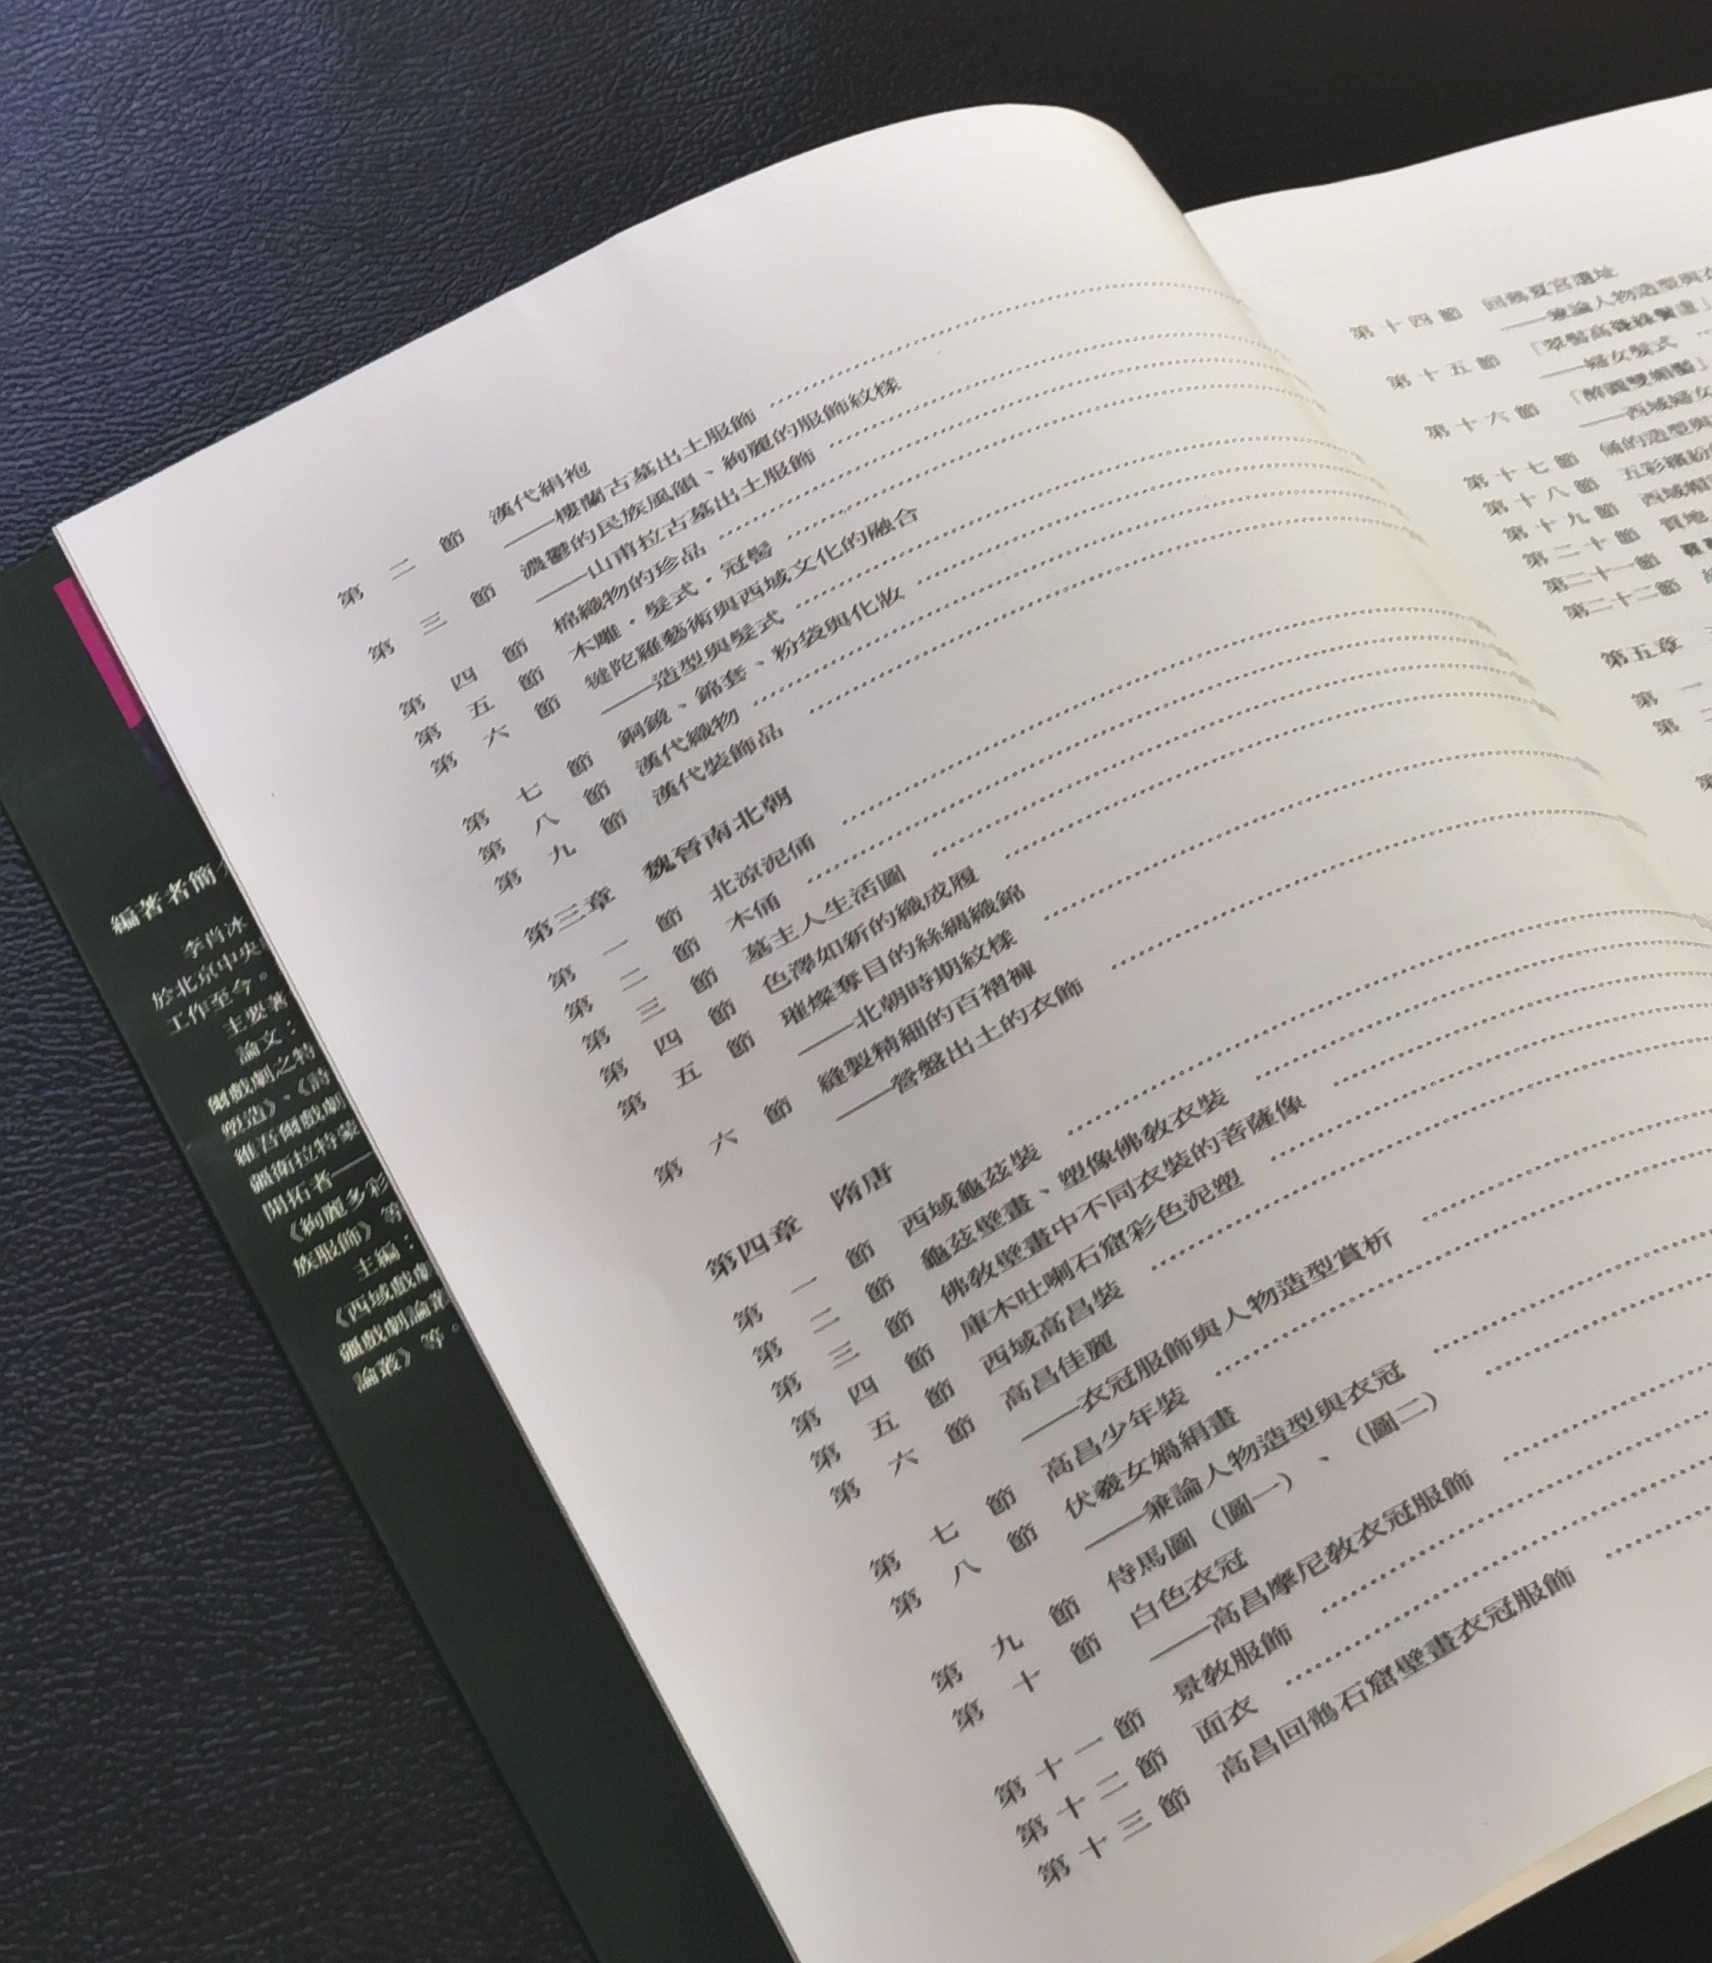 第二節 漢代絹袍
——樓蘭古墓出土服飾
第三節 濃鬱的民族風韻、絢麗的服飾紋樣
——山甫拉古墓出土服飾
第四節 棉織物的珍品
第五節 木雕·髮式·冠髻
第六節 犍陀羅藝術與西域文化的融合
——造型與髮式
第七節 銅鏡、錦套、粉袋與化妝
第八節 漢代織物
第九節 漢代裝飾品
第三章 魏晉南北朝
第一節 北涼泥俑
第二節 木俑
第三節 墓主人生活圖
第四節 色澤如新的織成履
第五節 璀燦奪目的絲綢織錦
——北朝時期紋樣
第六節 縫製精細的百褶褲
——營盤出土的衣飾
第四章 隋唐
第一節 西域龜茲裝
第二節 龜茲壁畫、塑像佛教衣裝
第三節 佛教壁畫中不同衣裝的菩薩像
第四節 庫木吐喇石窟彩色泥塑
第五節 西域高昌裝
第六節 高昌佳麗
——衣冠服飾與人物造型賞析
第七節 高昌少年裝
第八節 伏羲女媧絹畫
——兼論人物造型與衣冠
第九節 侍馬圖（圖一）、（圖二）
第十節 白色衣冠
——高昌摩尼教衣冠服飾
第十一節 景教服飾
第十二節 面衣
第十三節 高昌回鶻石窟壁畫衣冠服飾
第十四節 回鶻夏宮遺址
——兼論人物造型與
第十五節
——婦女髮式
第十六節
——西域婦女
第十七節 俑的造型與
第十八節 五彩繽紛
第十九節 西域帽
第二十節 質地
第二十一節
第二十二節
第五章
第一
第二
第
編著者簡
李肖冰
於北京中央
工作至今。
主要著
論文：
爾戲劇之特
塑造》、《詩
維吾爾戲劇
疆衛拉特蒙
開拓者——
《絢麗多彩
族服飾》等
主編：
《西域戲劇
疆戲劇論叢
論叢》等。